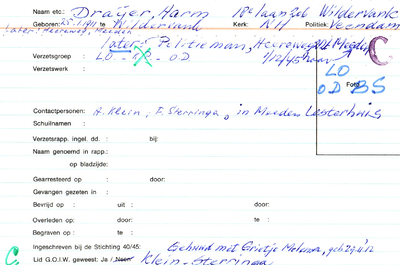 Naam etc.: Draijer, Harm 10e laan 206 Wildervank
Geboren: 25.1.1911 te Wildervank Kerk: NH Politiek: Veendam
later: Heereweg, Meeden
later: Politieman, Heereweg Meeden
Verzetsgroep : LO - KP - OD 9/12/45 naar C
Verzetswerk : LO
Foto
OD BS
Contactpersonen: A. Klein, E. Sterringa, in Meeden
Schuilnaam :
Verzetsrapp. ingel. dd. : bij:
Naam genoemd in rapp.:
op bladzijde:
Gearresteerd op : door:
Gevangen gezeten in :
Bevrijd op : uit : door:
Overleden op: door: te :
Begraven op : te :
Ingeschreven bij de Stichting 40/45: Gehuwd met Grietje Molema, geb.
C. Lid G.O.I.W. geweest: Ja / Neen Klein-Sterringa